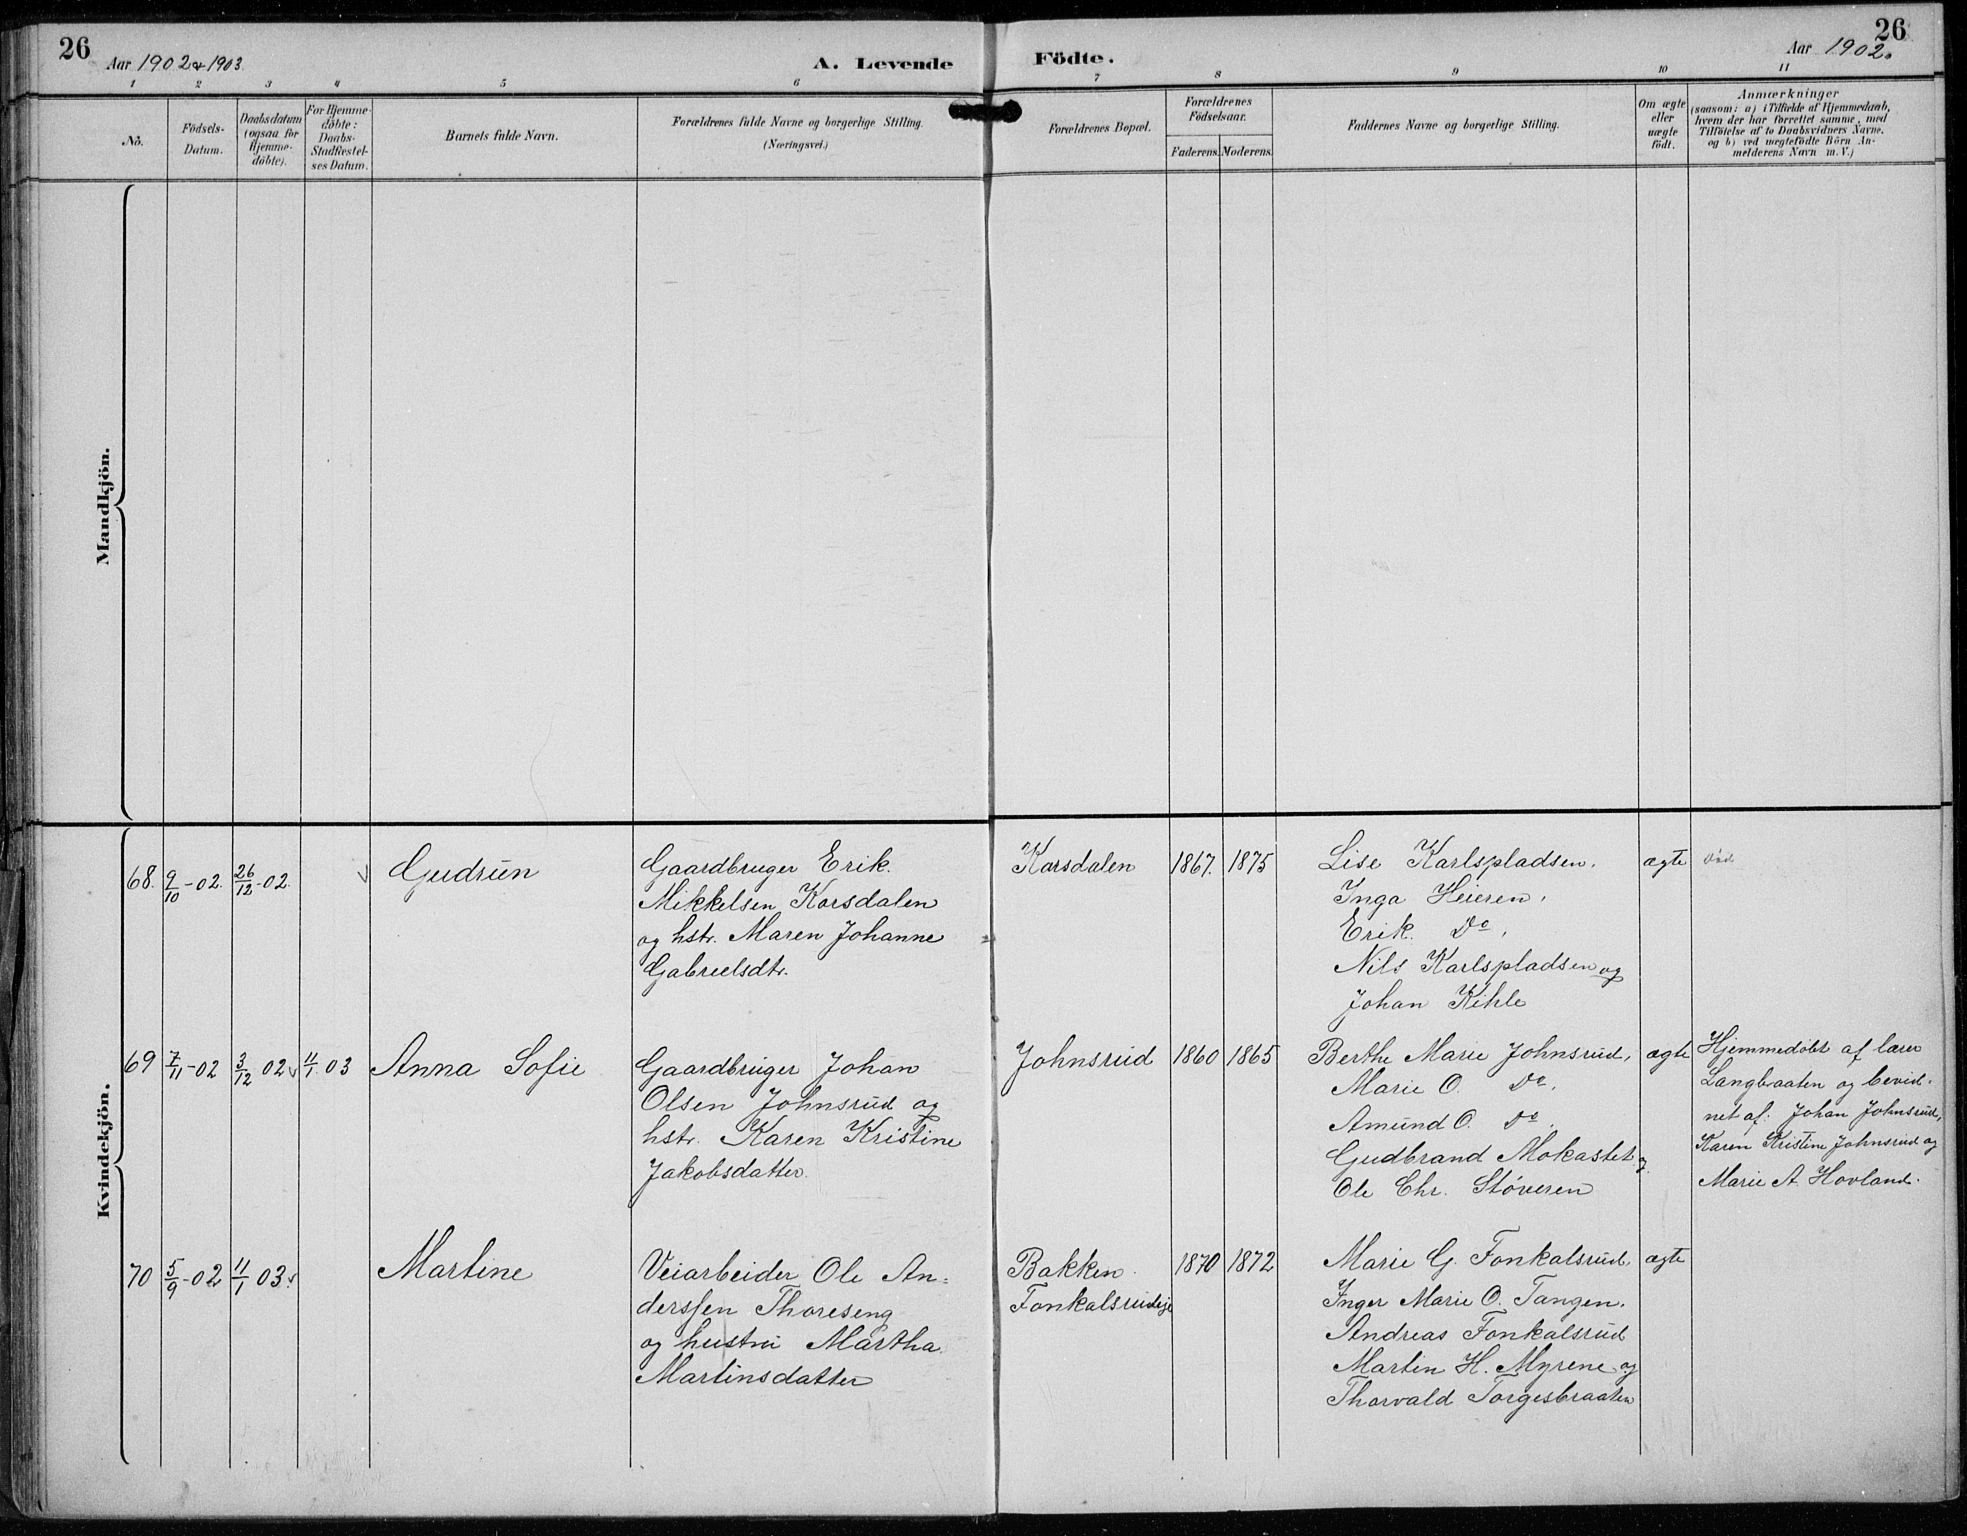 26
Aar 1902 & 1903.
A. Levende Födte.
Aar 1902.
26
1 2 3 4 5 6 7 8 9 10 11
No.
Födsels-
Datum.
Daabsdatum
(ogsaa for
Hjemme-
döbte).
For Hjemme-
döbte:
Daabs-
Stadfæstel-
ses Datum.
Barnets fulde Navn.
Forældrenes fulde Navne og borgerlige Stilling.
(Næringsvei.)
Forældrenes Bopæl.
Forældrenes
Födselsaar.
Faderens. Moderens.
Faddernes Navne og borgerlige Stilling.
Om ægte
eller
uægte
födt.
Anmærkninger
(saasom: a) i Tilfælde af Hjemmedaab,
hvem der har forrettet samme, med
Tilföielse af to Daabsvidners Navne.
og b) ved uægtefödte Börn An-
melderens Navn m. V.)
Mandkjön.
Kvindekjön.
68. 9/10-02. 26/12-02.
Gudrun
Gaardbruger Erik.
Mikkelsen Korsdalen
og hstr. Maren Johanne
Gabrielsdtr.
Korsdalen
1867. 1875
Lise Karlspladsen.
Inga Heieren.
Erik. Do.
Nils Karlspladsen og
Johan Kihle
ægte
død
69 7/11-02 3/12 02 11/1 03
Anna Sofie
Gaardbruger Johan
Olsen Johnsrud og
hstr. Karen Kristine
Jakobsdatter.
Johnsrud
1860 1865
Berthe Marie Johnsrud.
Marie O. Do.
Amund O. Do.
Gudbrand Mokastet og
Ole Chr. Støveren
ægte
Hjemmedøbt af lærer
Langbraaten og bevid-
net af. Johan Johnsrud,
Karen Kristine Johnsrud og
Marie A. Hovland.
70 5/9-02 11/1 03.
Martine
Veiarbeider Ole An-
derssen Thoreseng
og hustru Martha
Martinsdatter
Bakken
Fonkalsrudeje
1870 1872
Marie G. Fonkalsrud.
Inger Marie O. Tangen.
Andreas Fonkalsrud
Martin H. Myrene og
Thorvald Torgesbraaten
ægte